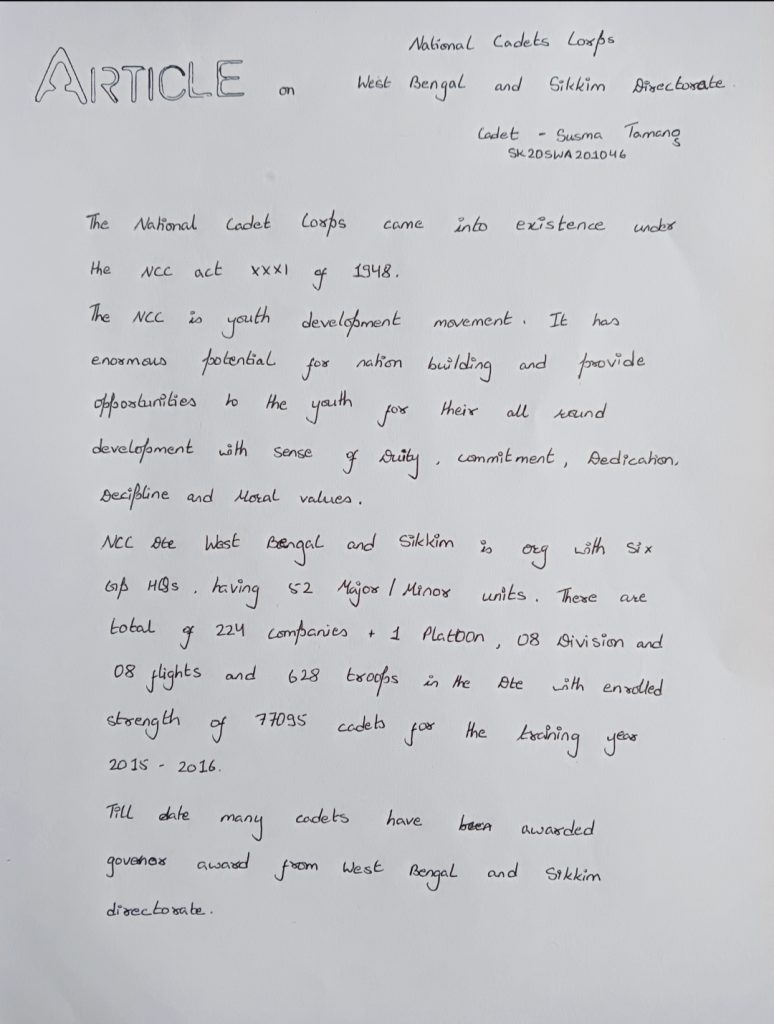 National Cadets Corps
ARTICLE on West Bengal and Sikkim Directorate.
Cadet - Susma Tamang
SK20SWA201046
The National Cadet Corps came into existence under
the NCC act XXXI of 1948.
The NCC is youth development movement. It has
enormous potential for nation building and provide
opportunities to the youth for their all round
development with sense of Duity, commitment, Dedication,
Decipline and Moral values.
NCC Dte West Bengal and Sikkim is org with six
Gp HQs, having 52 Major / Minor units. There are
total of 224 companies + 1 Platoon, 08 Division and
08 flights and 628 troops in the Dte with enrolled
strength of 77095 cadets for the training year
2015 - 2016.
Till date many cadets have been awarded
govenor award from West Bengal and Sikkim
directorate.